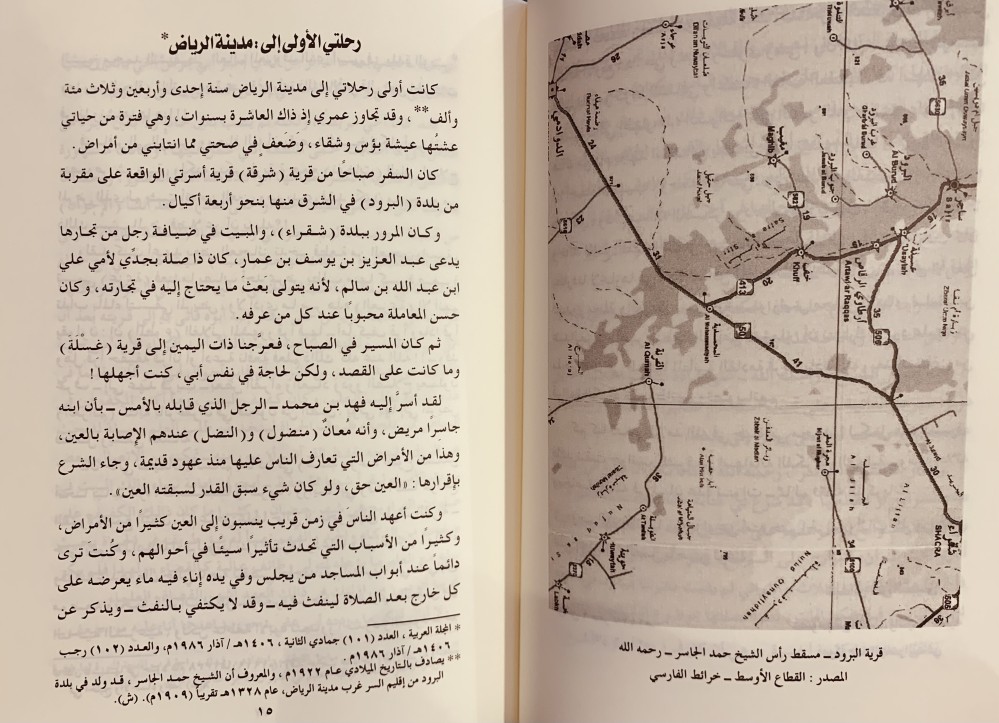 رحلتي الأولى إلى: مدينة الرياض*
كانت أولى رحلاتي إلى مدينة الرياض سنة إحدى وأربعين وثلاث مئة
وألف**، وقد تجاوز عمري إذ ذاك العاشرة بسنوات، وهي فترة من حياتي
عشتُها عيشة بؤس وشقاء، وضَعف في صحتي مما انتابني من أمراض.
كان السفر صباحًا من قرية (شرقة) قرية أسرتي الواقعة على مقربة
من بلدة (البرود) في الشرق منها بنحو أربعة أكيال.
وكان المرور ببلدة (شقراء)، والمبيت في ضيافة رجل من تجارها
يدعى عبد العزيز بن يوسف بن عمار، كان ذا صلة بجدّي لأمي علي
ابن عبد الله بن سالم، لأنه يتولى بَعثَ ما يحتاج إليه في تجارته، وكان
حسن المعاملة محبوبًا عند كل من عرفه.
ثم كان المسير في الصباح، فعرَّجنا ذات اليمين إلى قرية (غِسْلَة)
وما كانت على القصد، ولكن لحاجة في نفس أبي، كنت أجهلها!
لقد أسرَّ إليه فهد بن محمد ــ الرجل الذي قابله بالأمس ــ بأن ابنه
جاسِرًا مريض، وأنه مُعانٌ (منضول) و(النضل) عندهم الإصابة بالعين،
وهذا من الأمراض التي تعارف الناس عليها منذ عهود قديمة، وجاء الشرع
بإقرارها: «العين حق، ولو كان شيء سبق القدر لسبقته العين».
وكنت أعهد الناسَ في زمن قريب ينسبون إلى العين كثيرًا من الأمراض،
وكثيرًا من الأسباب التي تحدث تأثيرًا سيئًا في أحوالهم، وكُنتَ ترى
دائمًا عند أبواب المساجد من يجلس وفي يده إناء فيه ماء يعرضه على
كل خارج بعد الصلاة لينفث فيه ــ وقد لا يكتفي بالنفث ــ ويذكر عن
* المجلة العربية، العدد (١٠١) جمادي الثانية، ١٤٠٦هـ/ آذار ١٩٨٦م، والعدد (١٠٢) رجب
١٤٠٦هـ/ آذار ١٩٨٦م.
** يصادف بالتاريخ الميلادي عام ١٩٢٢م، والمعروف أن الشيخ حمد الجاسر، قد ولد في بلدة
البرود من إقليم السر غرب مدينة الرياض، عام ١٣٢٨هـ تقريبًا (١٩٠٩م). (ش).
١٥
الدوادمي
مغيب
Maghib
البرود
Al Burud
جنوب البرود
ساجر
Sajir
عسيلة
Usaylah
خف
Khuff
أرطاوي الرقاص
Artawi ar Raqqas
المحمدية
القرنة
شقراء
SHAQRA
413
509
41
31
30
35
قرية البرود ــ مسقط رأس الشيخ حمد الجاسر ــ رحمه الله
المصدر: القطاع الأوسط ــ خرائط الفارسي